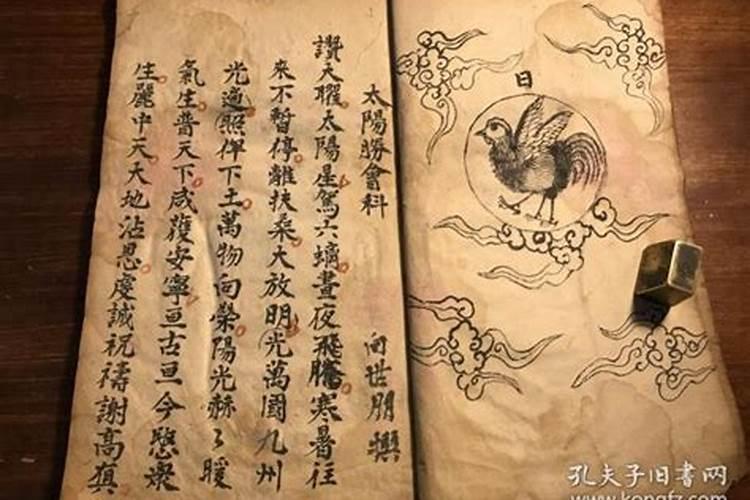 日
太陽勝會科 向世朋撰
讚天曜太陽星駕六螭晝夜飛騰寒暑往
來不暫停離扶桑大放明光萬國九州
光遍照俾下土萬物向榮陽光赫々暖
氣生普天下咸獲安寧亘古亘今愍衆
生麗中天天地沾恩虔誠祝禱謝高真
孔夫子旧书网
www.kongfz.com